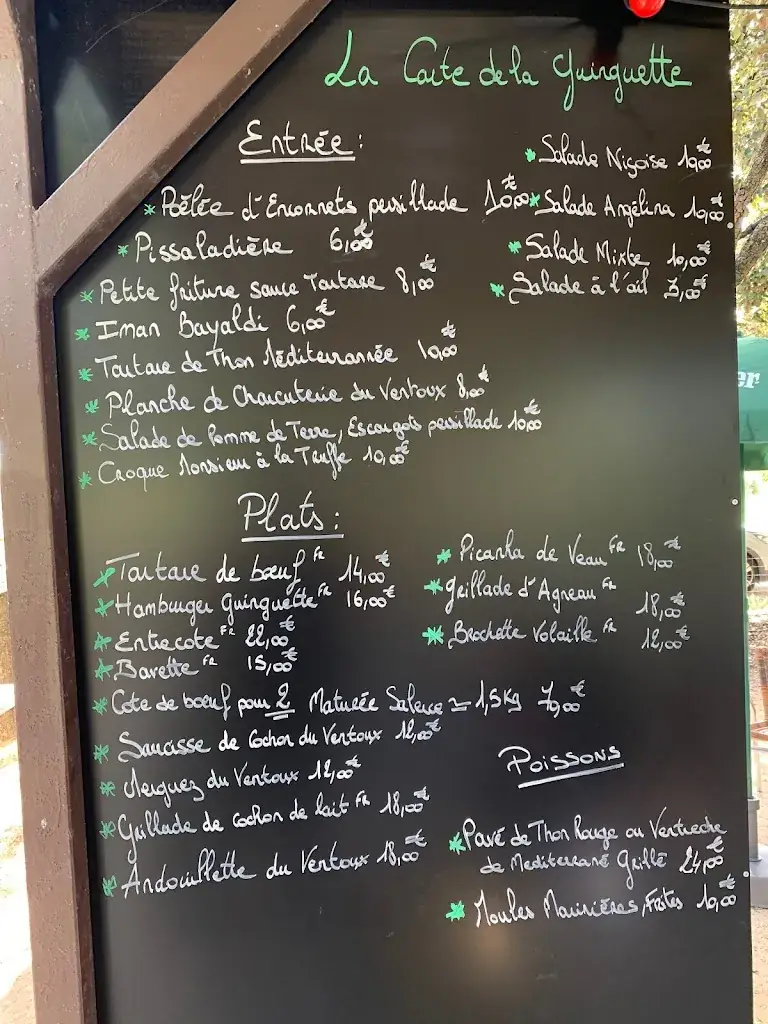 La Carte de la Guinguette
Entrée :
* Poêlée d'Encornets persillade 10,00€
* Pissaladière 6,00€
* Petite friture sauce Tartare 8,00€
* Iman Bayaldi 6,00€
* Tartare de Thon Méditerrannée 10,00€
* Planche de Charcuterie du Ventoux 8,00€
* Salade de Pomme de Terre, Escargots persillade 10,00€
* Croque Monsieur à la Truffe 10,00€
* Salade Niçoise 10,00€
* Salade Angélina 10,00€
* Salade Mixte 10,00€
* Salade à l'ail 3,00€
Plats :
* Tartare de bœuf FR 14,00€
* Hamburger Guinguette FR 16,00€
* Entrecote FR 22,00€
* Bavette FR 15,00€
* Cote de bœuf pour 2 Maturée Salence ≃ 1,5Kg 70,00€
* Saucisse de Cochon du Ventoux 12,00€
* Merguez du Ventoux 12,00€
* Grillade de cochon de lait FR 18,00€
* Andouillette du Ventoux 18,00€
* Picanha de Veau FR 18,00€
* Grillade d'Agneau FR 18,00€
* Brochette Volaille FR 12,00€
Poissons
* Pavé de Thon Rouge ou Ventreche
de Mediterrané Grillé 24,00€
* Moules Marinières, Frites 10,00€
er